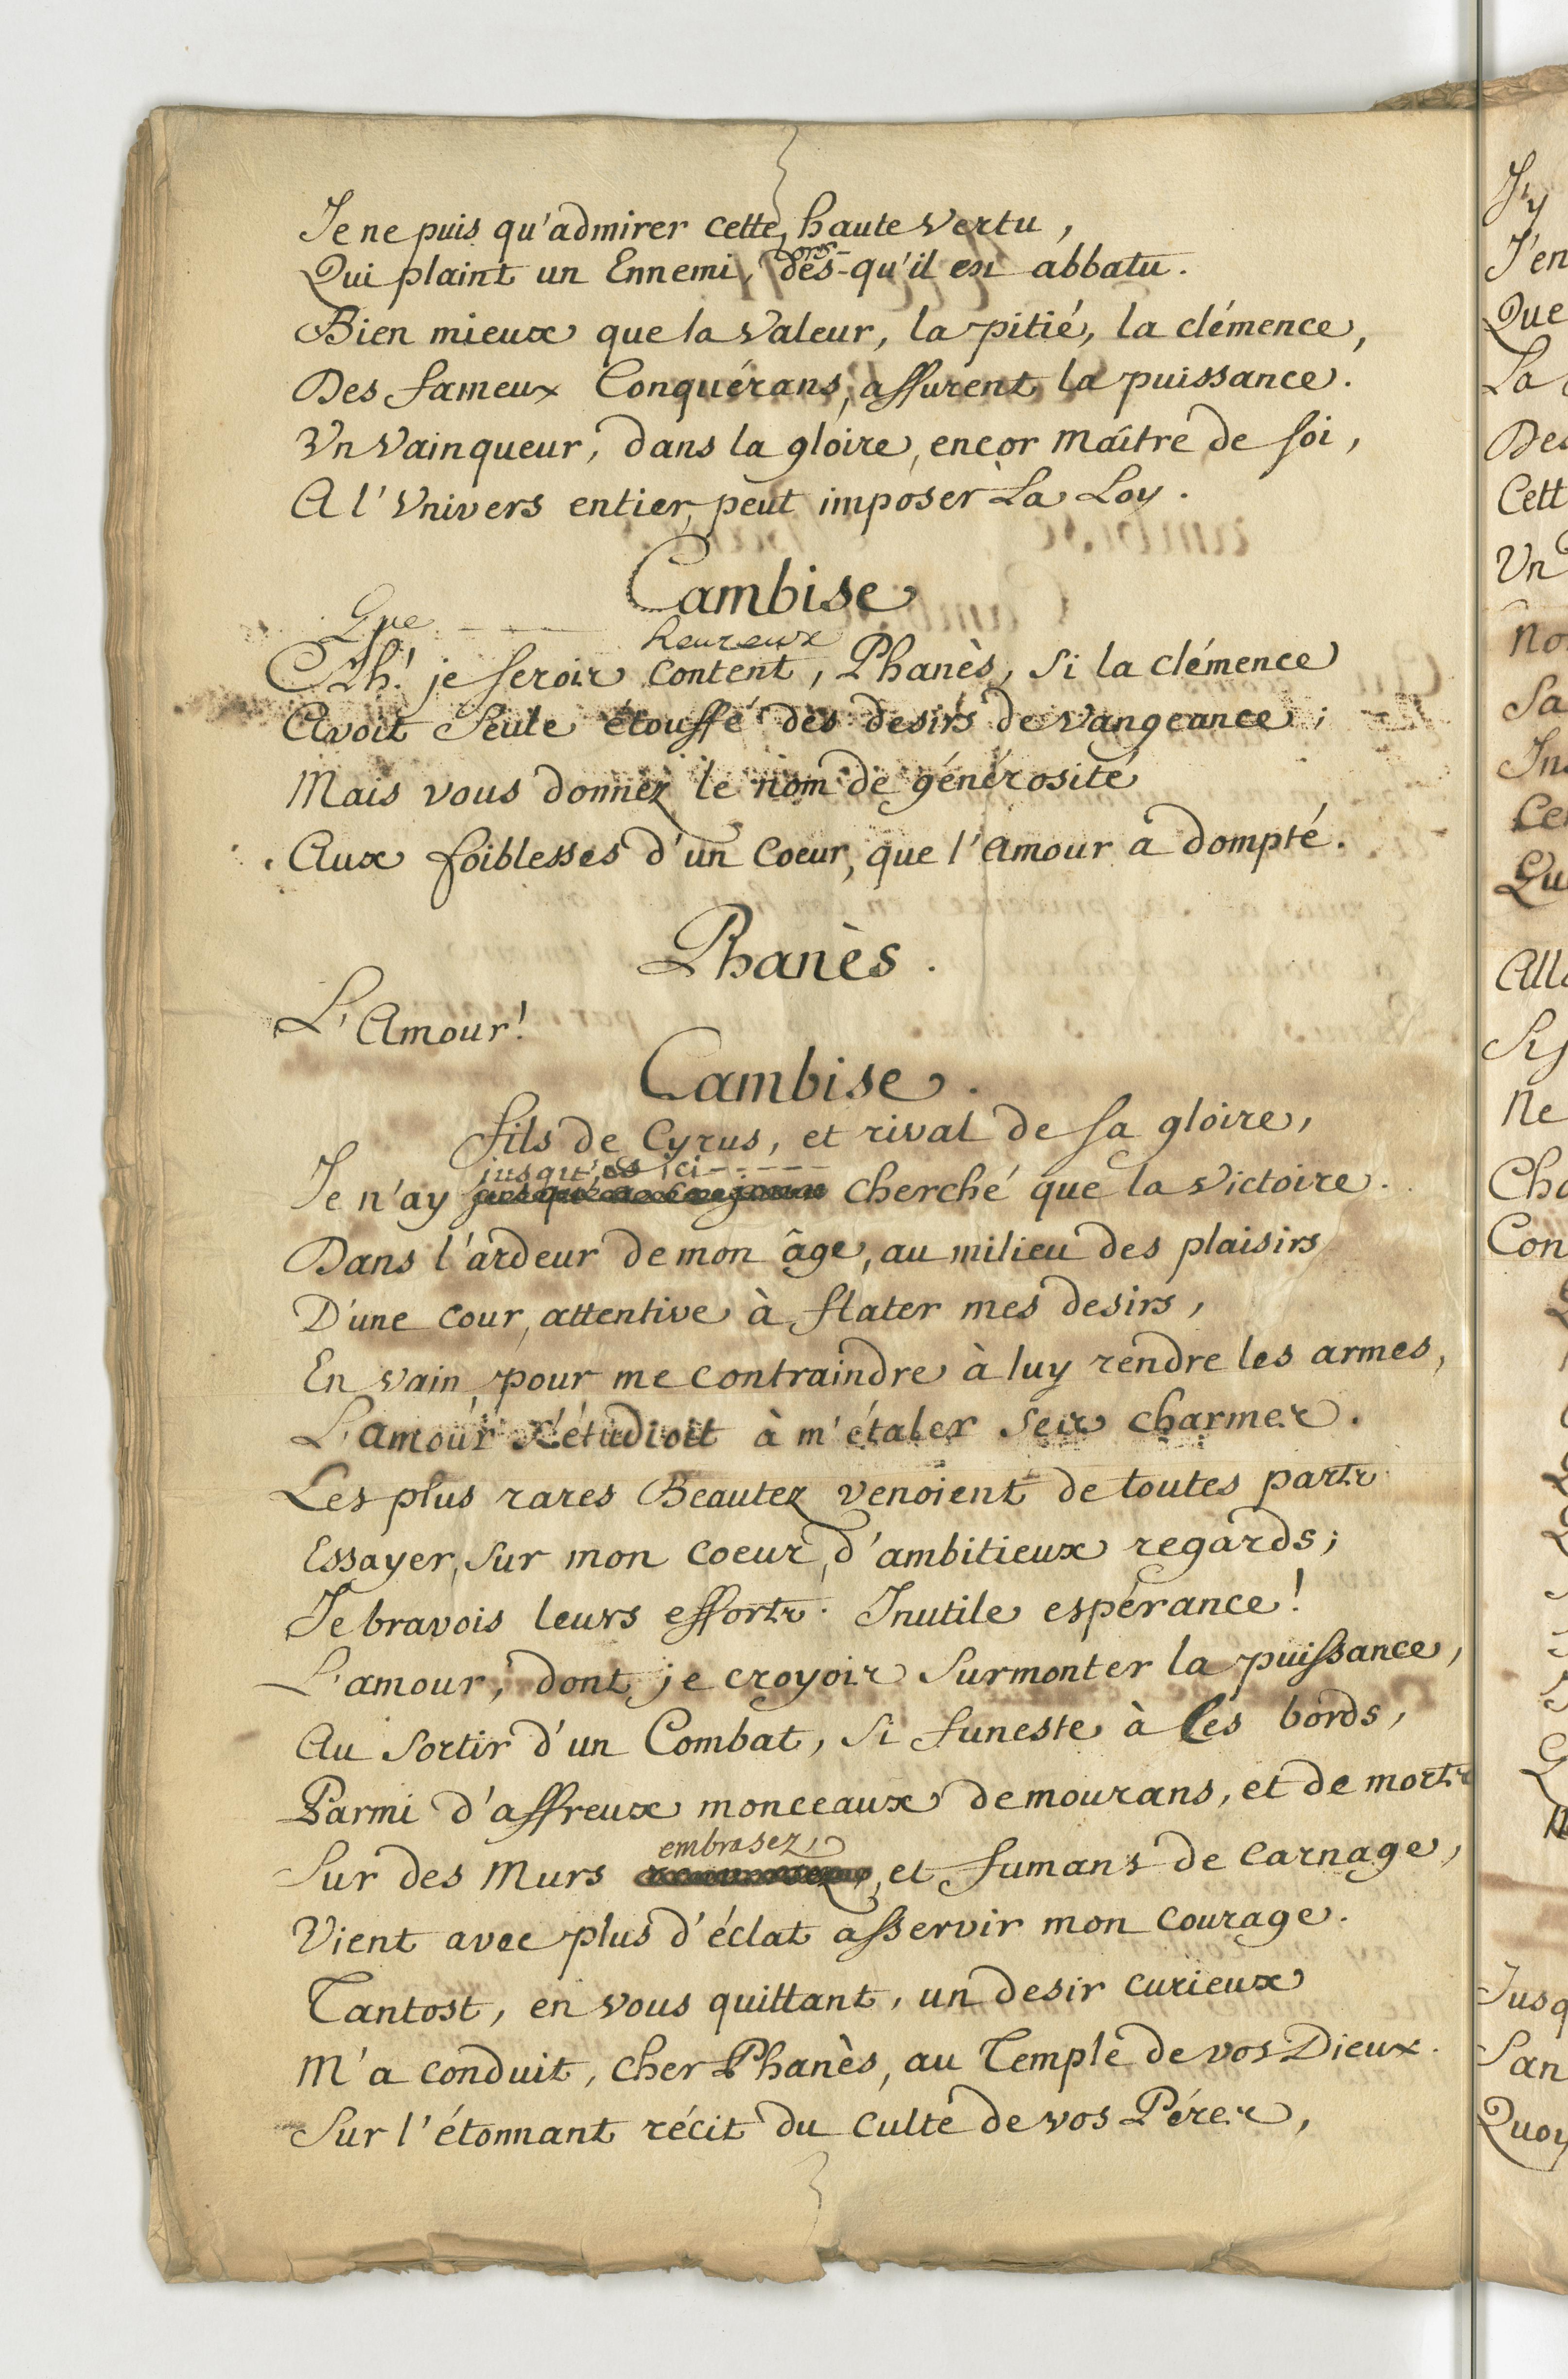 Je ne puis qu'admirer cette haute vertu,
lors-
Qui plaint un Ennemi, dès-qu'il est abbatu.
Bien mieux que la valeur, la pitié, la clémence,
Des fameux Conquérans, assurent la puissance.
Un Vainqueur, dans la gloire, encor Maître de soi,
A l'Univers entier, peut imposer La Loy.
Cambise
Que heureux
Ah! je serois content, Phanès, si la clémence
Avoit seule étouffé des desirs de vangeance;
Mais vous donnez le nom de générosité
Aux foiblesses d'un Coeur, que l'Amour a dompté.
Phanès.
L'Amour!
Cambise.
Fils de Cyrus, et rival de sa gloire,
jusqu'ici
Je n'ay cherché que la victoire.
Dans l'ardeur de mon âge, au milieu des plaisirs
D'une Cour, attentive à flater mes desirs,
En vain, pour me contraindre à luy rendre les armes,
L'amour s'étudioit à m'étaler ses charmes.
Les plus rares Beautez venoient de toutes parts
Essayer, sur mon coeur, d'ambitieux regards;
Je bravois leurs efforts. Inutile espérance!
L'amour, dont je croyois surmonter la puissance,
Au sortir d'un Combat, si funeste à ces bords,
Parmi d'affreux monceaux de mourans, et de morts
embrasez,
Sur des Murs et fumans de carnage,
Vient avec plus d'éclat asservir mon courage.
Tantost, en vous quittant, un desir curieux
M'a conduit, cher Phanès, au Temple de vos Dieux.
Sur l'étonnant récit du culte de vos Péres,
J'y
J'en
Que
La
Des
Cett
Un
No
Sa
Ne
Con
Jusq
San
Quoy